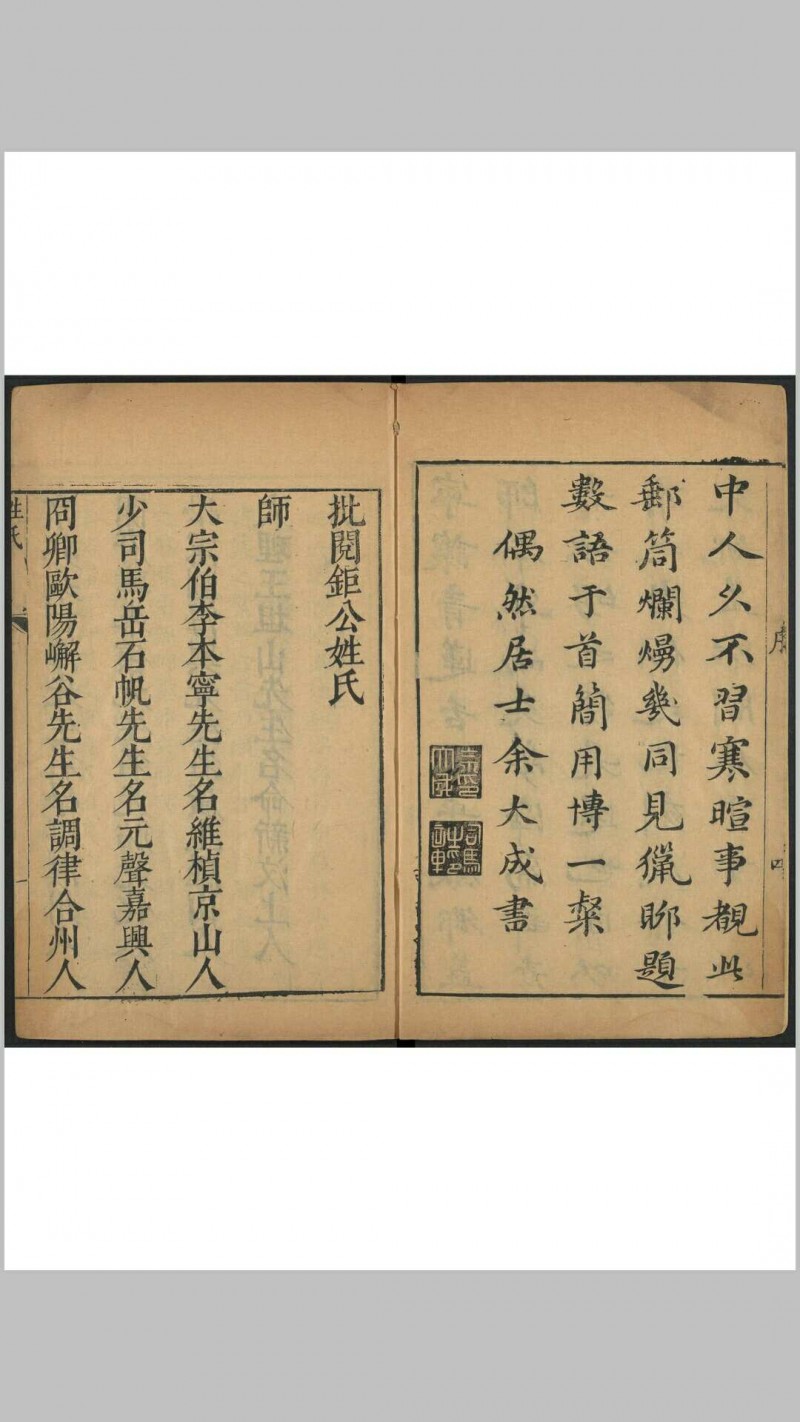 序
四
中人久不習寒暄事覩此
郵筒爛熳幾同見獵聊題
數語于首簡用博一粲
偶然居士余大成書
批閱鉅公姓氏
師
大宗伯李本寧先生名維楨京山人
少司馬岳石帆先生名元聲嘉興人
冏卿歐陽嶰谷先生名調律合州人
姓氏
一